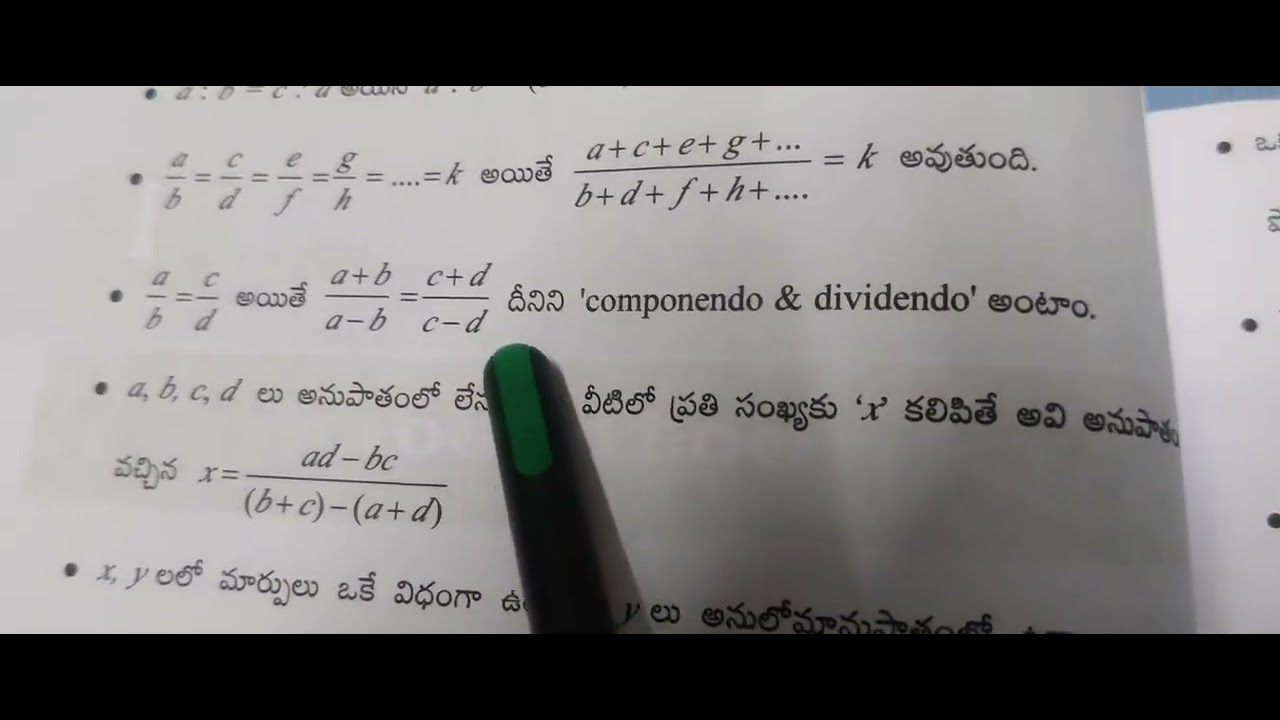 • a : b = c : d అయిన
• a/b = c/d = e/f = g/h = ....= k అయితే (a+c+e+g+...)/(b+d+f+h+....) = k అవుతుంది.
• a/b = c/d అయితే (a+b)/(a−b) = (c+d)/(c−d) దీనిని 'componendo & dividendo' అంటాం.
• a, b, c, d లు అనుపాతంలో వీటిలో ప్రతి సంఖ్యకు ‘x’ కలిపితే అవి
వచ్చిన x = (ad−bc)/((b+c)−(a+d))
• x, y లలో మార్పులు ఒకే విధంగా y లు అనులోమానుపాతంలో